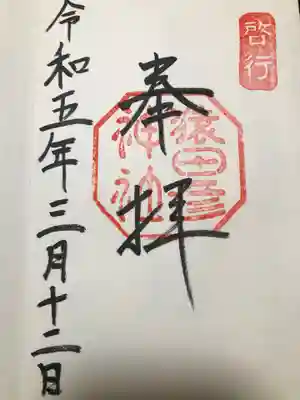 啓行
奉拝
猿田彦
神社
令和五年三月十二日